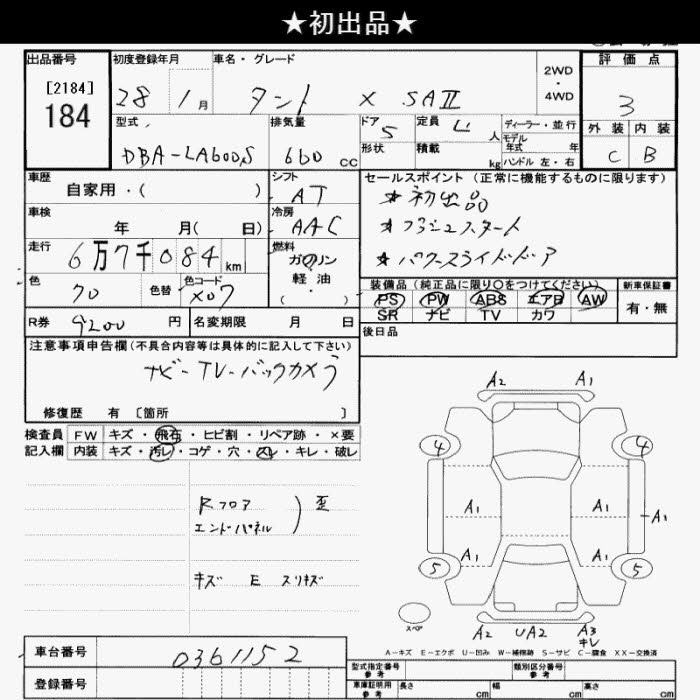 ★初出品★
出品番号
[2184]
184
初度登録年月
28 1月
車名・グレード
タント X SAⅡ
2WD
・
4WD
評価点
3
外装 内装
C B
型式
DBA-LA600S
排気量
660 CC
ドア 5
形状
定員 4 人
積載 kg
ディーラー・並行
モデル
年式 年
ハンドル 左・右
車歴
自家用・( )
シフト
AT
車検
年 月( 日)
冷房
AAC
走行
6万7千084 km
燃料
ガソリン
軽油
・
( )
色
クロ
色替
色コード
X07
R券 9200 円
名変期限 月 日
セールスポイント(正常に機能するものに限ります)
★初出品
★プッシュスタート
★パワースライドドア
装備品(純正品に限り○をつけてください)
PS PW ABS エアB AW
SR ナビ TV カワ
新車保証書
有・無
後日品
注意事項申告欄(不具合内容等は具体的に記入して下さい)
ナビ-TV-バックカメラ
修復歴 有〔箇所 〕
検査員
記入欄
FW キズ・飛石・ヒビ割・リペア跡・×要
内装 キズ・汚レ・コゲ・穴・スレ・キレ・破レ
Rフロア
エンドパネル
歪
キズ E スリキズ
A2 A1
4 4
A1 A1 A1
A1 A1
5 5
スペア
A2 UA2 A3
キレ
A-キズ E-エクボ U-凹み W-補修跡 S-サビ C-腐食 XX-交換済
車台番号
0361152
登録番号
型式指定番号
参考
類別区分番号
参考
車庫証明用
参考
長さ cm 幅 cm 高さ cm